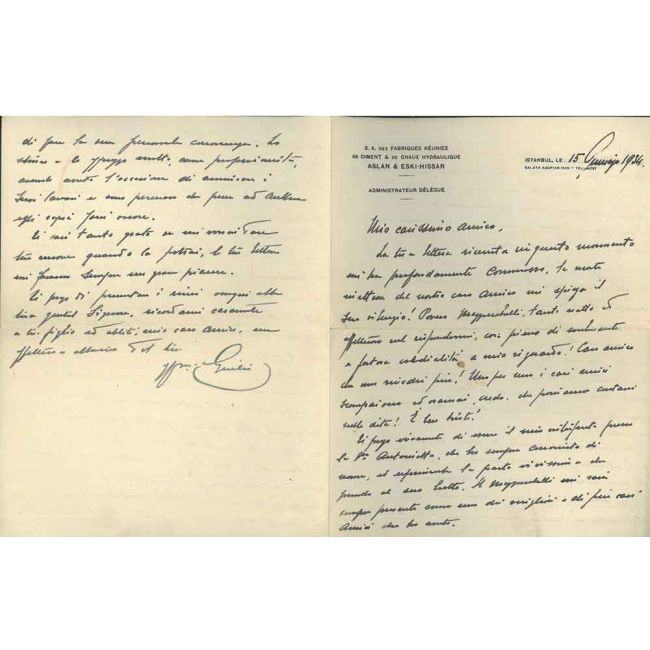 S. A. DES FABRIQUES RÉUNIES
DE CIMENT & DE CHAUX HYDRAULIQUE
ASLAN & ESKI-HISSAR
ADMINISTRATEUR DÉLÉGUÉ
ISTANBUL, LE 15 Gennaio 1934.
GALATA
Mio carissimo Amico,
La tua lettera ricevuta in questo momento
mi ha profondamente commosso. La morte
del nostro caro Amico mi spiega il
suo silenzio! Povero tanto esatto ed
affettuoso nel rispondermi, così pieno di
e cordialità a mio riguardo! Caro amico
che non rivedrò più! Uno per uno i cari amici
scompaiono ed oramai, credo, che possiamo contarci
sulle dita! È ben triste!
Ti prego vivamente di essere il mio interprete presso
la Antonietta, che ho sempre conosciuto di
nome, ed esprimerle la parte vivissima che
prendo al suo lutto. mi sarà
sempre presente come uno dei migliori e di più cari
Amici che ho avuto.
di fare la sua personale conoscenza. Lo
stimo e lo molto, come professionista,
avendo avuto l'occasione di ammirare i
suoi lavori e sono persuaso che pure ad Ankara
egli saprà farsi onore.
Ti sarò tanto grato se mi vorrai dare
tue ancora quando lo potrai, le tue lettere
mi faranno sempre un gran piacere.
Ti prego di presentare i miei omaggi alla
tua gentil Signora, ricordami
a tuo figlio ed abbiti, mio caro amico, un
affettuoso abbraccio dal tuo